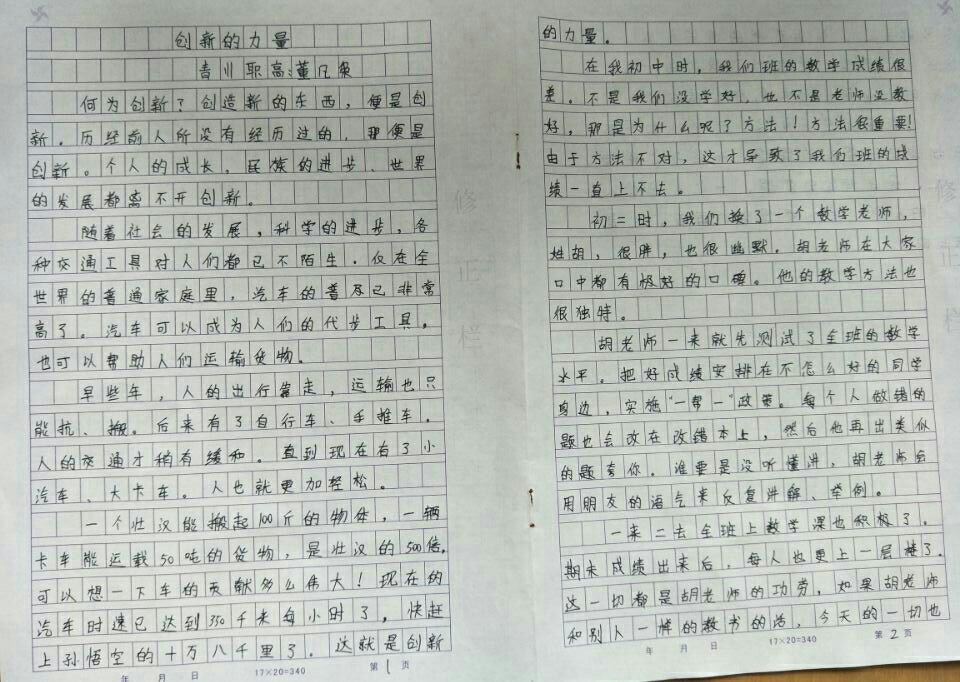 创新的力量
青川职高:董凡
何为创新?创造新的东西,便是创
新。历经前人所没有经历过的,那便是
创新。个人的成长,民族的进步、世界
的发展都离不开创新。
随着社会的发展,科学的进步,各
种交通工具对人们都已不陌生。仅在全
世界的普通家庭里,汽车的普及已非常
高了。汽车可以成为人们的代步工具,
也可以帮助人们运输货物。
早些年,人的出行靠走,运输也只
能抗、搬。后来有了自行车、手推车,
人的交通才稍有缓和。直到现在有了小
汽车、大卡车。人也就更加轻松。
一个壮汉能搬起100斤的物体,一辆
卡车能运载50吨的货物,是壮汉的500倍。
可以想一下车的贡献多么伟大!现在的
汽车时速已达到350千米每小时了,快赶
上孙悟空的十万八千里了。这就是创新
年 月 日 17×20=340 第1页
的力量。
在我初中时,我们班的数学成绩很
差。不是我们没学好,也不是老师没教
好,那是为什么呢?方法!方法很重要!
由于方法不对,这才导致了我们班的成
绩一直上不去。
初二时,我们换了一个数学老师,
姓胡,很胖,也很幽默。胡老师在大家
口中都有极好的口碑。他的教学方法也
很独特。
胡老师一来就先测试了全班的数学
水平。把好成绩安排在不怎么好的同学
身边,实施"一帮一"政策。每个人做错的
题也会改在改错本上,然后他再出类似
的题考你。谁要是没听懂讲,胡老师会
用朋友的语气来反复讲解、举例。
一来二去全班上数学课也积极了。
期末成绩出来后,每人也更上一层楼了。
这一切都是胡老师的功劳,如果胡老师
和别人一样的教书的话,今天的一切也
年 月 日 17×20=340 第2页
修正栏
修正栏